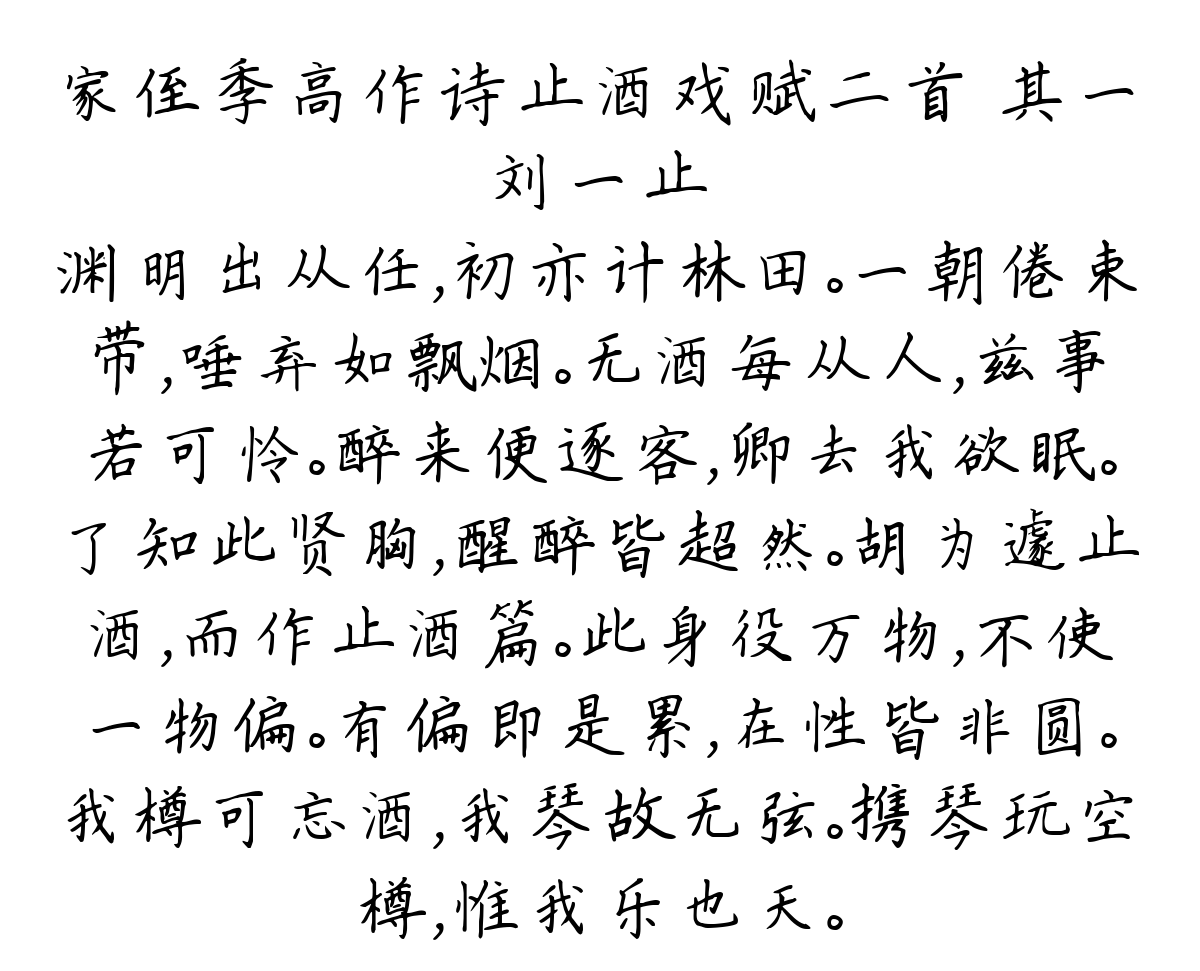 家侄季高作诗止酒戏赋二首 其一
刘一止
渊明出从任,初亦计林田。一朝倦束
带,唾弃如飘烟。无酒每从人,兹事
若可怜。醉来便逐客,卿去我欲眠。
了知此贤胸,醒醉皆超然。胡为遽止
酒,而作止酒篇。此身役万物,不使
一物偏。有偏即是累,在性皆非圆。
我樽可忘酒,我琴故无弦。携琴玩空
樽,惟我乐也天。